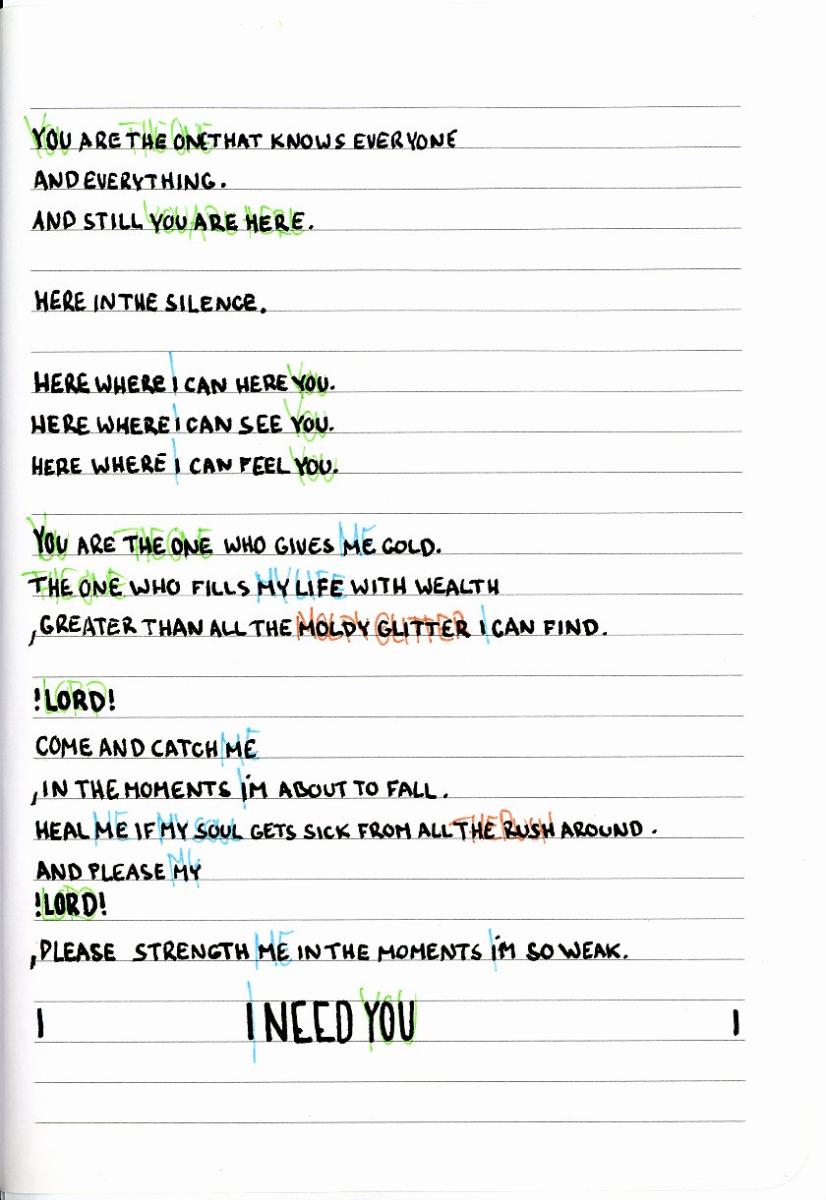 YOU ARE THE ONE THAT KNOWS EVERYONE
AND EVERYTHING.
AND STILL YOU ARE HERE.
HERE IN THE SILENCE.
HERE WHERE I CAN HERE YOU.
HERE WHERE I CAN SEE YOU.
HERE WHERE I CAN FEEL YOU.
YOU ARE THE ONE WHO GIVES ME GOLD.
THE ONE WHO FILLS MY LIFE WITH WEALTH
,GREATER THAN ALL THE MOLDY GLITTER I CAN FIND.
!LORD!
COME AND CATCH ME
,IN THE MOMENTS I'M ABOUT TO FALL.
HEAL ME IF MY SOUL GETS SICK FROM ALL THE RUSH AROUND.
AND PLEASE MY
!LORD!
,PLEASE STRENGTH ME IN THE MOMENTS I'M SO WEAK.
I I NEED YOU I